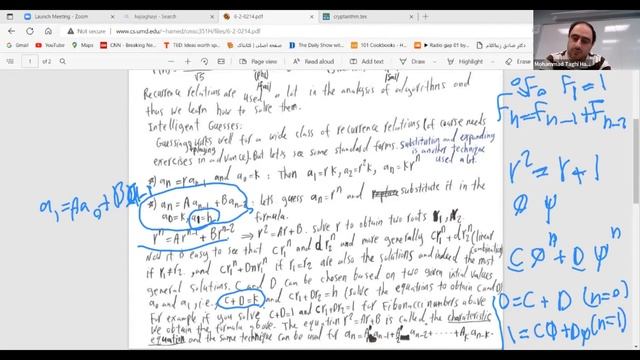 Launch Meeting - Zoom
hajiaghayi - Search
6-2-0214.pdf
cryptarithm.tex
www.cs.umd.edu/~hamed/cmsc351H/files/6-2-0214.pdf
The Daily Show wit...
101 Cookbooks - H...
Radio gap 01 by...
TED: Ideas worth s...
of 2
Mohammad Taghi Ha...
√5
Recurrence relations are used a lot in the analysis of algorithms and
thus we learn how to solve them.
Intelligent Guesses:
Guessing works well for a wide class of recurrence relations (of course needs
exercises in advance). But let's see some standard forms. Substitution and expanding
is another technique
used a lot.
*) aₙ = r aₙ₋₁ and a₀ = k : Then a₁ = rk, a₂ = r²k, aₙ = krⁿ
*) aₙ = A aₙ₋₁ + B aₙ₋₂ : let's guess aₙ = rⁿ and substitute it in the
a₀ = k, a₁ = h formula.
rⁿ = Arⁿ⁻¹ + Brⁿ⁻² ⇒ r² = Ar + B. solve r to obtain two roots r₁, r₂.
Now it is easy to see that cr₁ⁿ and dr₂ⁿ and more generally cr₁ⁿ + dr₂ⁿ (linear
if r₁ ≠ r₂, and cr₁ⁿ + Dnr₁ⁿ if r₁ = r₂ are also the solutions and indeed the most
general solutions. C and D can be chosen based on two given initial values,
a₀ and a₁, i.e., C + D = k and Cr₁ + Dr₂ = h (solve the equations to obtain C and D)
For example if you solve C + D = and Cr₁ + Dr₂ = 1 for Fibonacci numbers above
we obtain the formula above. The equation r² = Ar + B is called the characteristic
equation and the same technique can be used for aₙ = A₁aₙ₋₁ + A₂aₙ₋₂ + ⋯ + Aₖaₙ₋ₖ.
a₁ = Aa₀ + B
F₀ F₁ = 1
Fₙ = Fₙ₋₁ + Fₙ₋₂
r² = r + 1
ϕ ψ
Cϕⁿ + Dψⁿ
0 = C + D (n=0)
1 = Cϕ + Dψ (n=1)